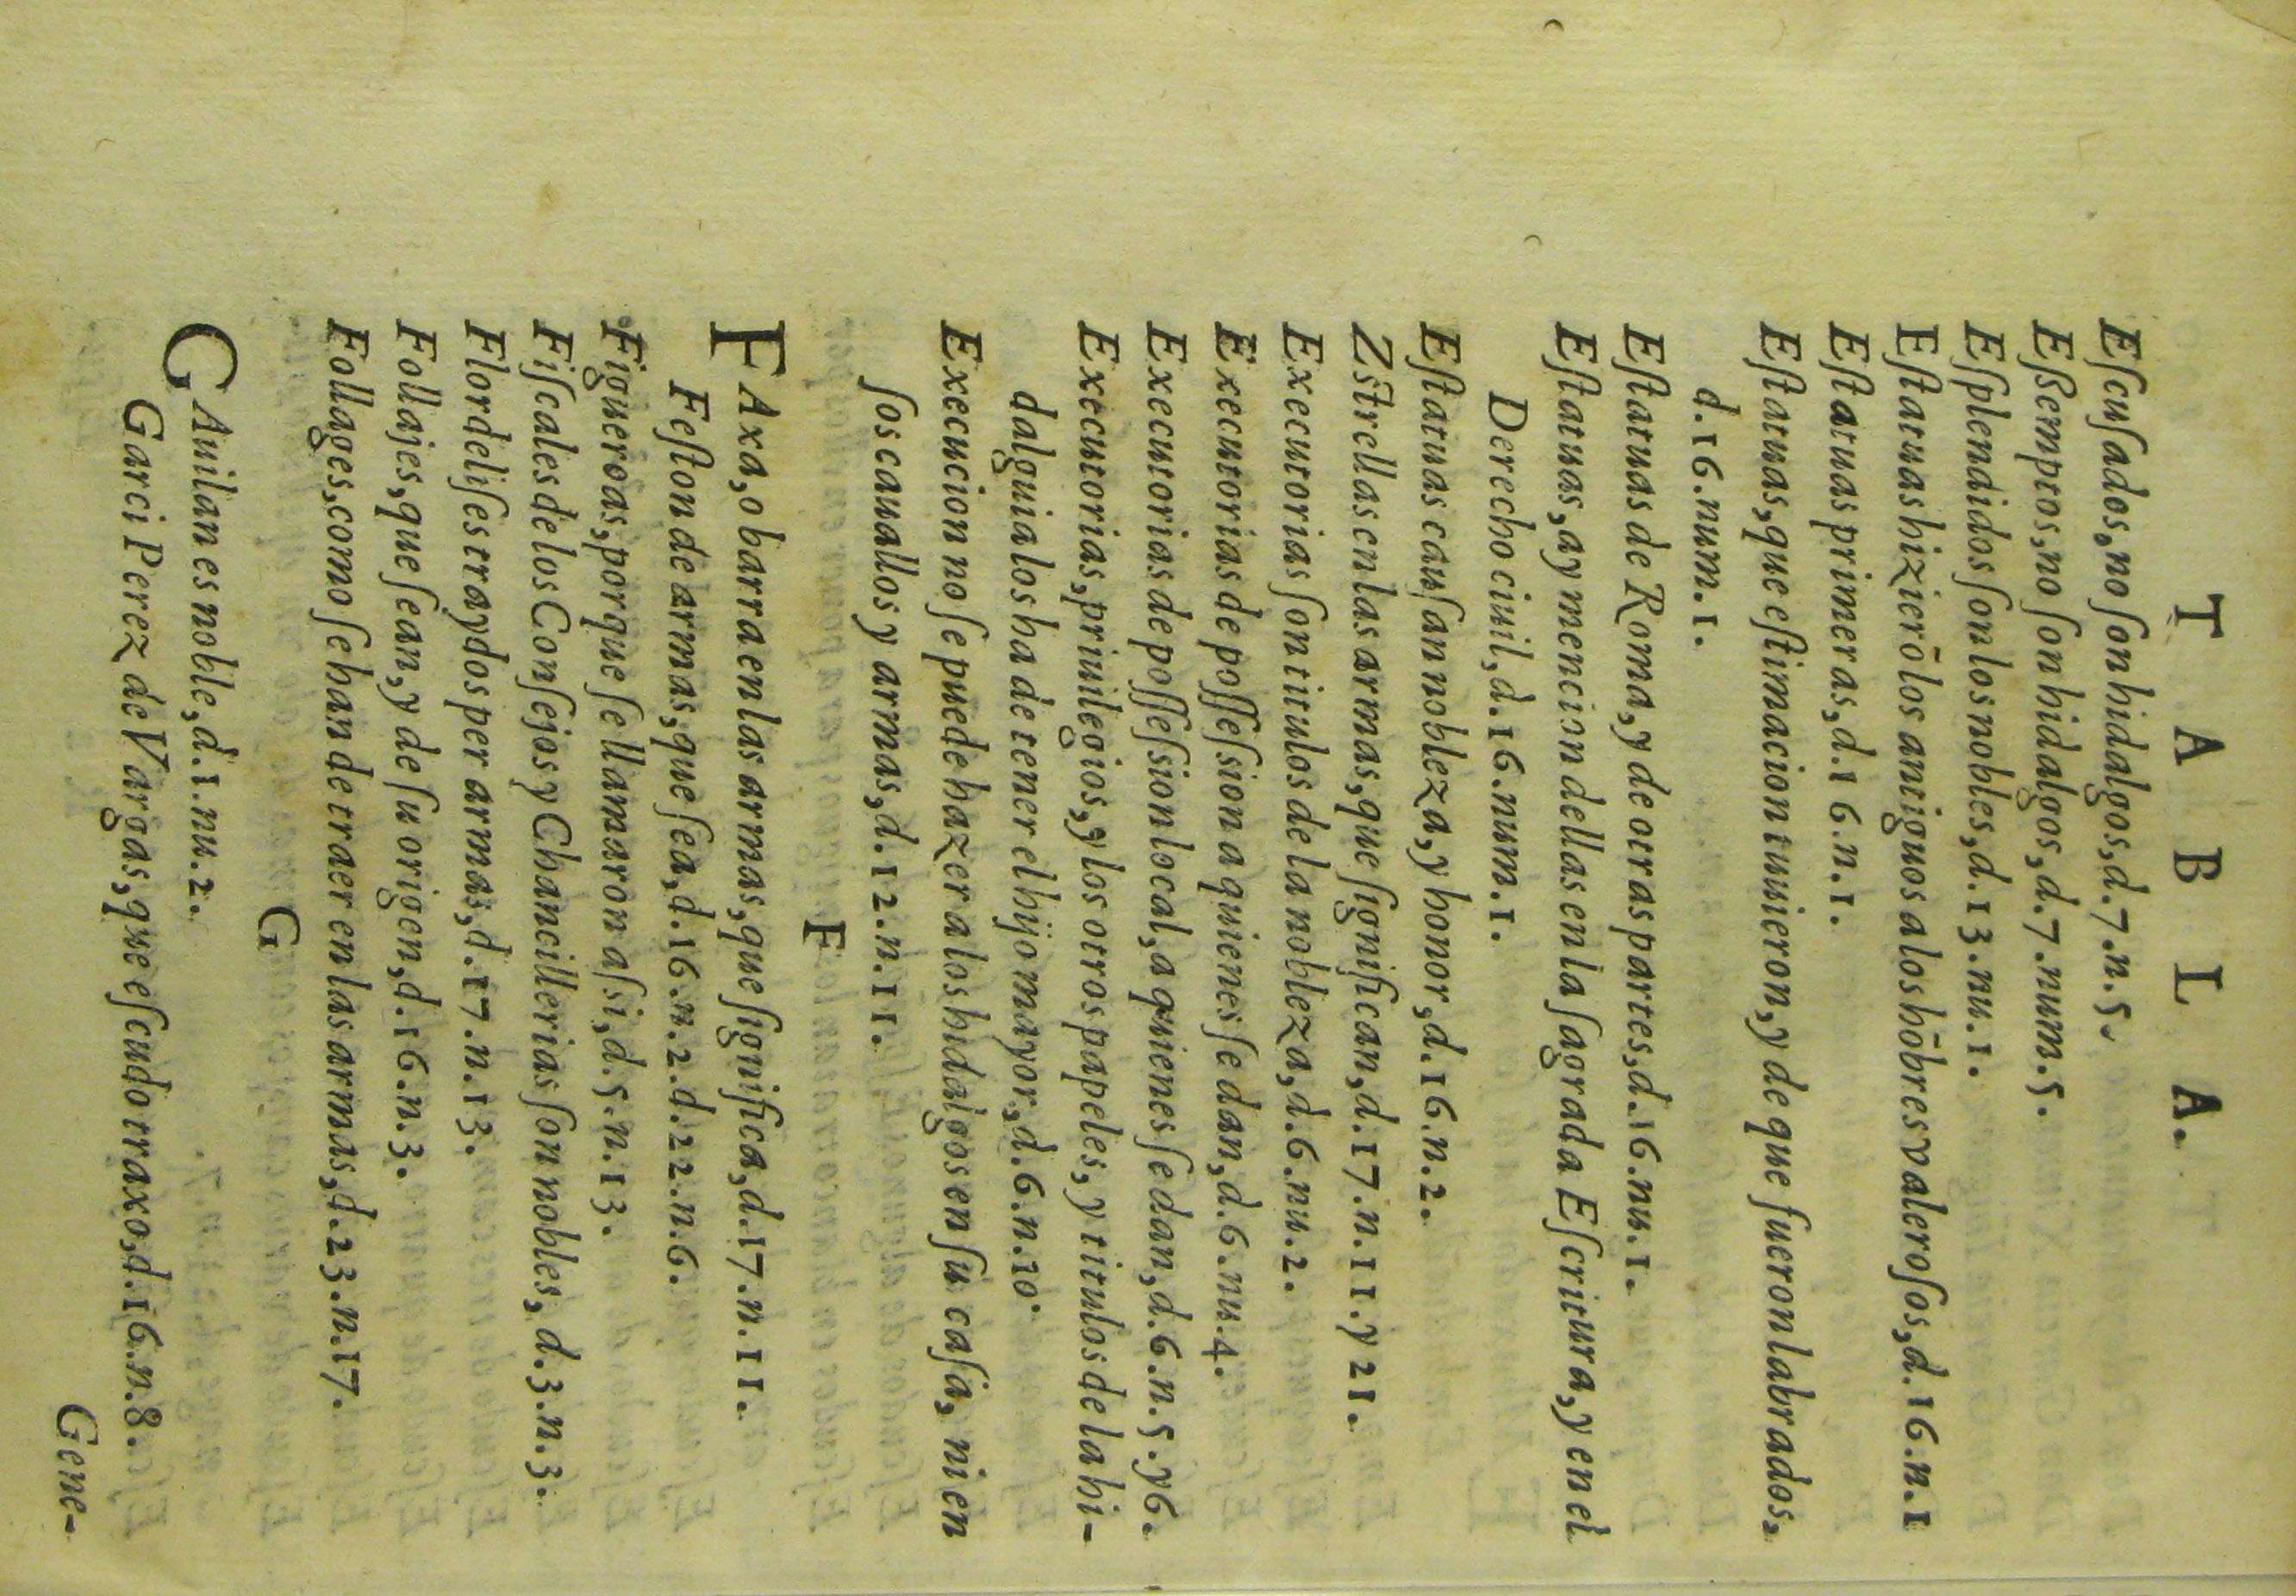 T A B L A.
Eſcuſados, no ſon hidalgos, d. 7. n. 5.
Eſſemptos, no ſon hidalgos, d. 7. num. 5.
Eſplendidos ſon los nobles, d. 13. nu. 1.
Eſtatuas hizierō los antiguos a los hōbres valeroſos, d. 16. n. 1
Eſtatuas primeras, d. 16. n. 1.
Eſtatuas, que eſtimacion tuuieron, y de que fueron labrados,
d. 16. num. 1.
Eſtatuas de Roma, y de otras partes, d. 16. nu. 1.
Eſtatuas, ay mencion dellas en la ſagrada Eſcritura, y en el
Derecho ciuil, d. 16. num. 1.
Eſtatuas cauſan nobleza, y honor, d. 16. n. 2.
Zſtrellas en las armas, que ſignifican, d. 17. n. 11. y 21.
Executorias ſon titulos de la nobleza, d. 6. nu. 2.
Executorias de poſſeſsion a quienes ſe dan, d. 6. nu. 4.
Executorias de poſſeſsion local, a quienes ſe dan, d. 6. n. 5. y 6.
Executorias, priuilegios, y los otros papeles, y titulos de la hi-
dalguia los ha de tener el hijo mayor, d. 6. n. 10.
Execucion no ſe puede hazer a los hidalgos en ſu caſa, ni en
ſos cauallos y armas, d. 12. n. 11.
F
FAxa, o barra en las armas, que ſignifica, d. 17. n. 11.
Feſton de armas, que ſea, d. 16. n. 2. d. 22. n. 6.
Figueroas, porque ſe llamaron aſsi, d. 5. n. 13.
Fiſcales de los Conſejos y Chancillerias ſon nobles, d. 3. n. 3.
Flordeliſes traydos per armas, d. 17. n. 13.
Follajes, que ſean, y de ſu origen, d. 16. n. 3.
Follages, como ſe han de traer en las armas, d. 23. n. 17.
G
GAuilan es noble, d. 1. nu. 2.
Garci Perez de Vargas, que eſcudo traxo, d. 16. n. 8.
Gene-